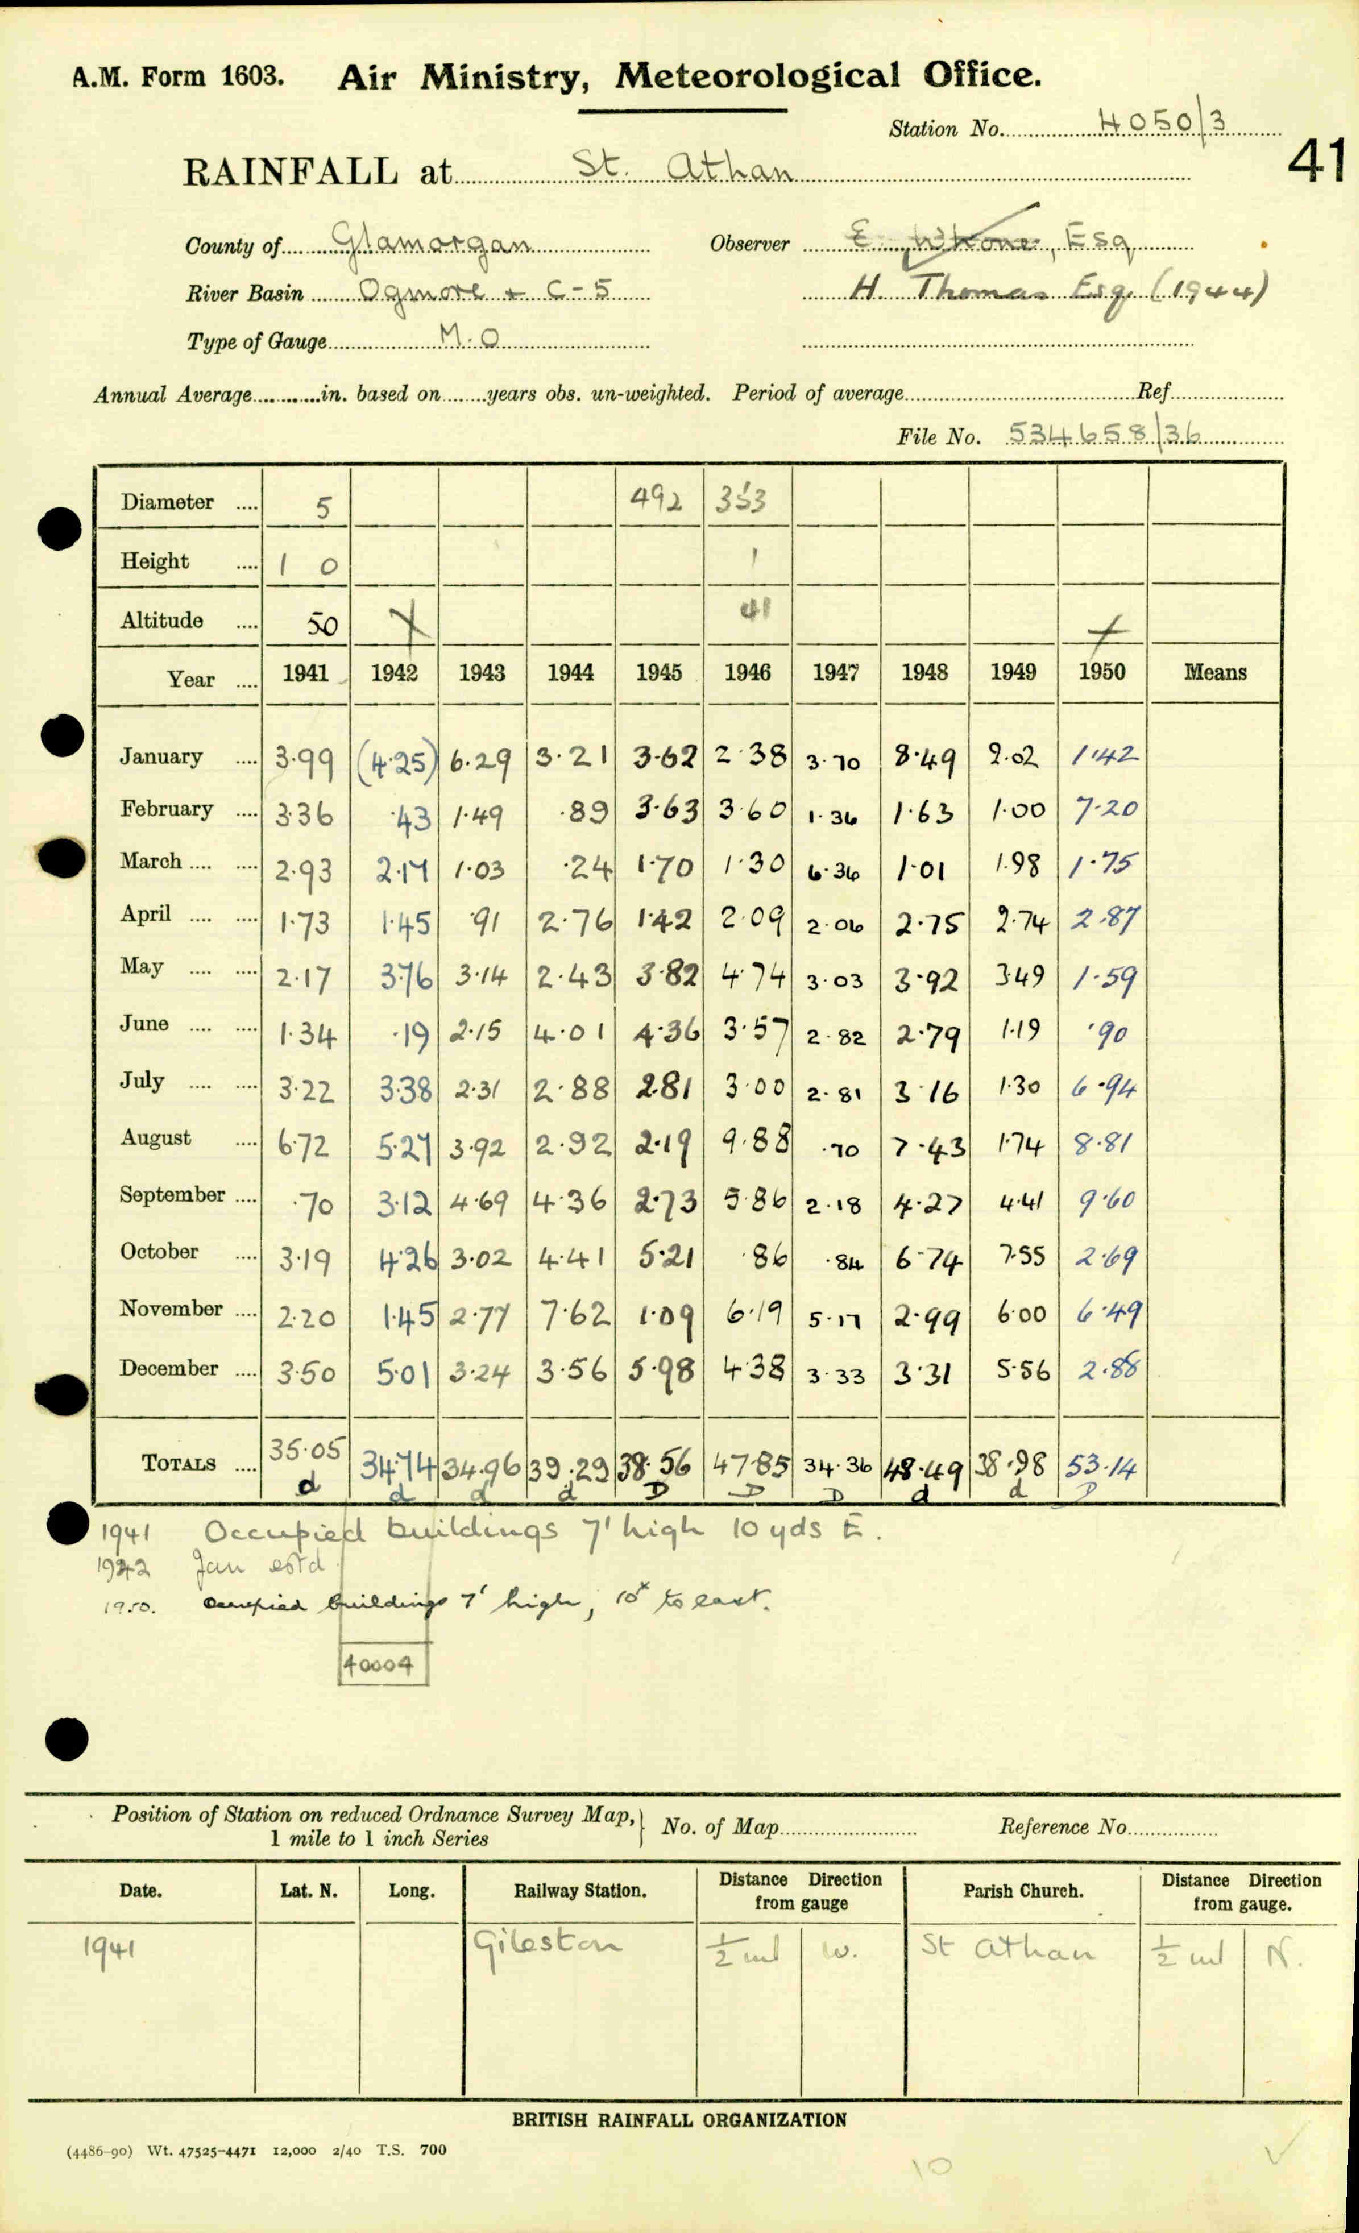 A.M. Form 1603. Air Ministry, Meteorological Office.
Station No. 4050/3
41
RAINFALL at St. Athan
County of Glamorgan Observer E. Whone, Esq
River Basin Ogmore + C-5 H. Thomas Esq. (1944)
Type of Gauge M.O
Annual Average in. based on years obs. un-weighted. Period of average Ref
File No. 534658/36
Diameter 5 492 353
Height 1 0 1
Altitude 50 X 41 +
Year 1941 1942 1943 1944 1945 1946 1947 1948 1949 1950 Means
January 3.99 (4.25) 6.29 3.21 3.62 2.38 3.70 8.49 2.02 1.42
February 3.36 .43 1.49 .89 3.63 3.60 1.36 1.63 1.00 7.20
March 2.93 2.17 1.03 .24 1.70 1.30 6.36 1.01 1.98 1.75
April 1.73 1.45 .91 2.76 1.42 2.09 2.06 2.75 2.74 2.87
May 2.17 3.76 3.14 2.43 3.82 4.74 3.03 3.92 3.49 1.59
June 1.34 .19 2.15 4.01 4.36 3.57 2.82 2.79 1.19 .90
July 3.22 3.38 2.31 2.88 2.81 3.00 2.81 3.16 1.30 6.94
August 6.72 5.27 3.92 2.92 2.19 9.88 .70 7.43 1.74 8.81
September .70 3.12 4.69 4.36 2.73 5.86 2.18 4.27 4.41 9.60
October 3.19 4.26 3.02 4.41 5.21 .86 .84 6.74 7.55 2.69
November 2.20 1.45 2.77 7.62 1.09 6.19 5.17 2.99 6.00 6.49
December 3.50 5.01 3.24 3.56 5.98 4.38 3.33 3.31 5.56 2.88
TOTALS 35.05 34.74 34.96 39.29 38.56 47.85 34.36 48.49 38.98 53.14
d d d d D D D d d D
1941 Occupied buildings 7' high 10 yds E.
1942 Jan estd
1950. Occupied buildings 7' high, 10x to east.
40004
Position of Station on reduced Ordnance Survey Map, No. of Map Reference No.
1 mile to 1 inch Series
Date. Lat. N. Long. Railway Station. Distance Direction from gauge Parish Church. Distance Direction from gauge.
1941 Gileston ½ ml W. St Athan ½ ml N.
BRITISH RAINFALL ORGANIZATION
(4486-90) Wt. 47525-4471 12,000 2/40 T.S. 700
10